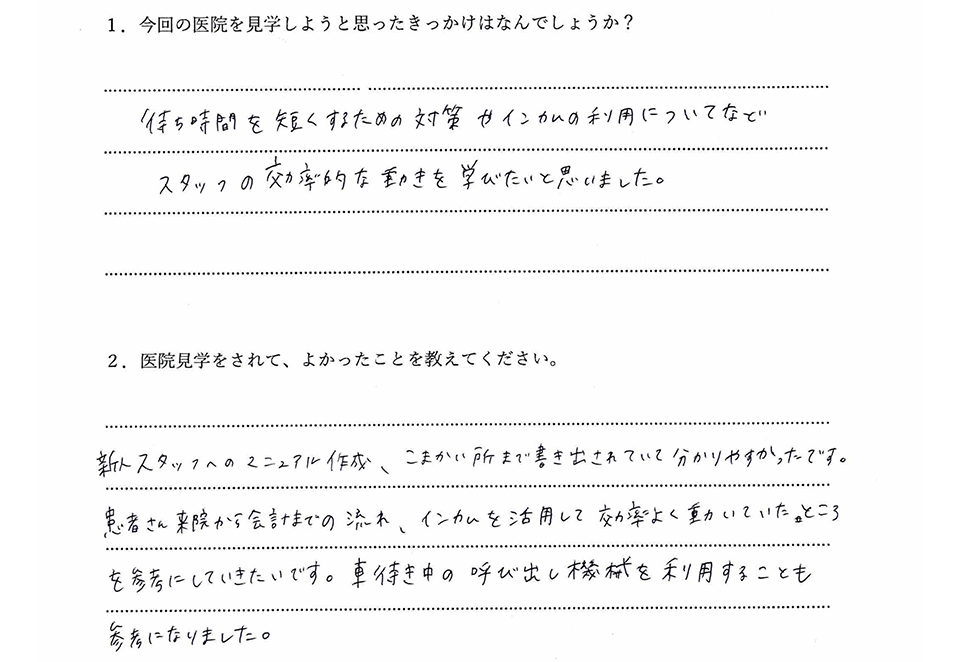 1．今回の医院を見学しようと思ったきっかけはなんでしょうか？
待ち時間を短くするための対策やインカムの利用についてなど
スタッフの効率的な動きを学びたいと思いました。
2．医院見学をされて、よかったことを教えてください。
新人スタッフへのマニュアル作成、こまかい所まで書き出されていて分かりやすかったです。
患者さん来院から会計までの流れ、インカムを活用して効率よく動いていたところ
を参考にしていきたいです。車待き中の呼び出し機械を利用することも
参考になりました。